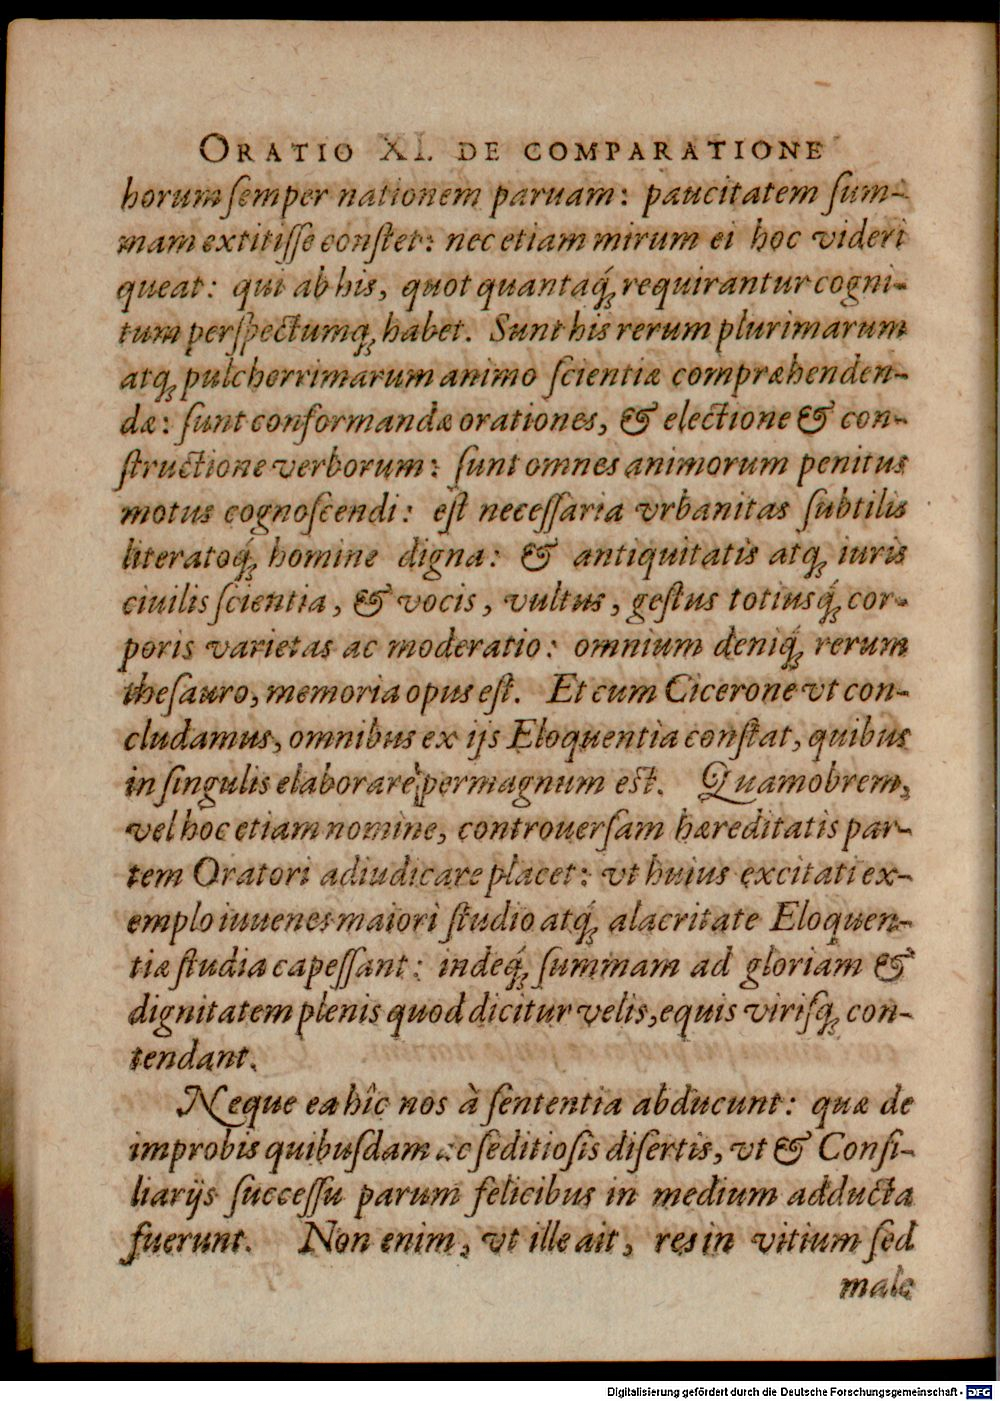 ORATIO XI. DE COMPARATIONE
horum semper nationem paruam: paucitatem sum-
mam extitisse constet: nec etiam mirum ei hoc videri
queat: qui ab his, quot quantaq́; requirantur cogni-
tum perspectumq; habet. Sunt his rerum plurimarum
atq; pulcherrimarum animo scientiæ compræhenden-
dæ: sunt conformandæ orationes, & electione & con-
structione verborum: sunt omnes animorum penitus
motus cognoscendi: est necessaria vrbanitas subtilis
literatoq́; homine digna: & antiquitatis atq; iuris
ciuilis scientia, & vocis, vultus, gestus totiusq́; cor-
poris varietas ac moderatio: omnium deniq́; rerum
thesauro, memoria opus est. Et cum Cicerone vt con-
cludamus, omnibus ex ijs Eloquentia constat, quibus
in singulis elaborare permagnum est. Quamobrem,
vel hoc etiam nomine, controuersam hæreditatis par-
tem Oratori adiudicare placet: vt huius excitati ex-
emplo iuuenes maiori studio atq́; alacritate Eloquen-
tiæ studia capessant: indeq́; summam ad gloriam &
dignitatem plenis quod dicitur velis, equis virisq; con-
tendant.
Neque ea hîc nos à sententia abducunt: quæ de
improbis quibusdam ac seditiosis disertis, vt & Consi-
liarijs successu parum felicibus in medium adducta
fuerunt. Non enim, vt ille ait, res in vitium sed
male
Digitalisierung gefördert durch die Deutsche Forschungsgemeinschaft - DFG